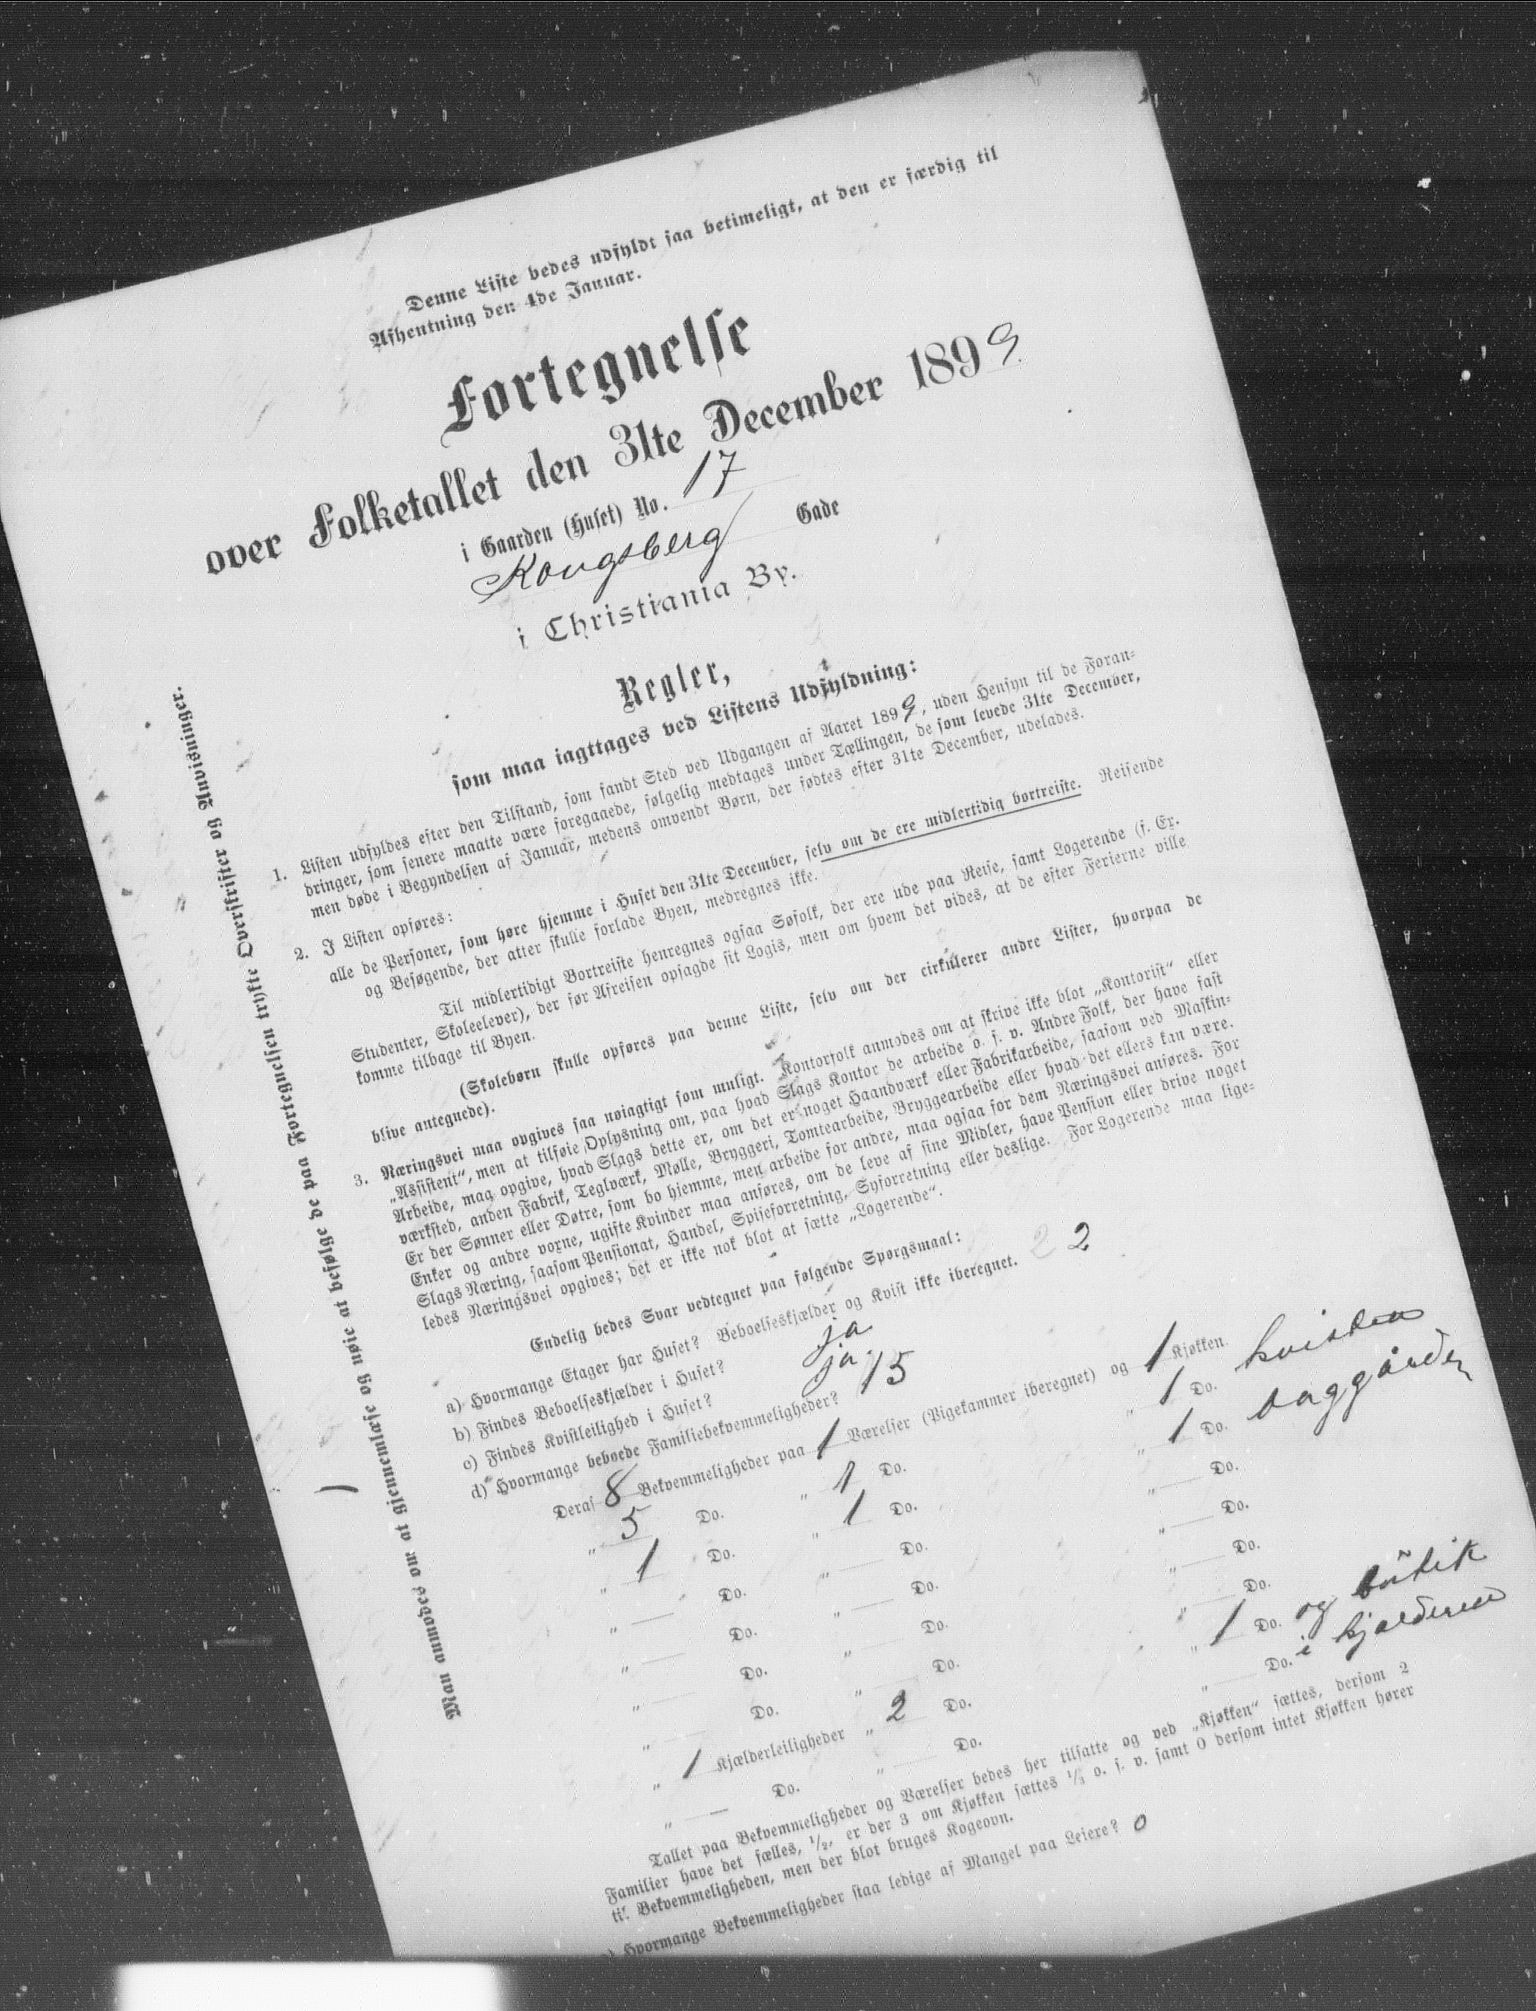 Denne Liste bedes udfyldt saa betimeligt, at den er færdig til
Afhentning den 4de Januar.
Fortegnelse
over Folketallet den 31te December 1899.
i Gaarden (Huset) No. 17
Kongsberg Gade
i Christiania By.
Regler,
som maa iagttages ved Listens Udfyldning:
1. Listen udfyldes efter den Tilstand, som fandt Sted ved Udgangen af Aaret 1899, uden Hensyn til de Foran-
dringer, som senere maatte være foregaaede, følgelig medtages under Tællingen, de som levede 31te December,
men døde i Begyndelsen af Januar, medens omvendt Børn, der fødtes efter 31te December, udelades.
2. I Listen opføres:
alle de Personer, som høre hjemme i Huset den 31te December, selv om de ere midlertidig bortreiste. Reisende
og Besøgende, der atter skulle forlade Byen, medregnes ikke.
Til midlertidigt Bortreiste henregnes ogsaa Søfolk, der ere ude paa Reise, samt Logerende (f. Ex.
Studenter, Skoleelever), der før Afreisen opsagde sit Logis, men om hvem det vides, at de efter Ferierne ville
komme tilbage til Byen.
(Skolebørn skulle opføres paa denne Liste, selv om der cirkulerer andre Lister, hvorpaa de
blive antegnede).
3. Næringsvei maa opgives saa nøiagtigt som muligt. Kontorfolk anmodes om at skrive ikke blot „Kontorist" eller
„Assistent", men at tilføie Oplysning om, paa hvad Slags Kontor de arbeide o. s. v. Andre Folk, der have fast
Arbeide, maa opgive, hvad Slags dette er, om det er noget Haandværk eller Fabrikarbeide, saasom ved Maskin-
værksted, anden Fabrik, Teglværk, Mølle, Bryggeri, Tomtearbeide, Bryggearbeide eller hvad det ellers kan være.
Er der Sønner eller Døtre, som bo hjemme, men arbeide for andre, maa ogsaa for dem Næringsvei anføres. For
Enker og andre voxne, ugifte Kvinder maa anføres, om de leve af sine Midler, have Pension eller drive noget
Slags Næring, saasom Pensionat, Handel, Spiseforretning, Syforretning eller deslige. For Logerende maa lige-
ledes Næringsvei opgives; det er ikke nok blot at sætte „Logerende".
Endelig bedes Svar vedtegnet paa følgende Spørgsmaal:
a) Hvormange Etager har Huset? Beboelseskjælder og Kvist ikke iberegnet. 2 2
b) Findes Beboelseskjælder i Huset? ja
c) Findes Kvistleilighed i Huset? ja
d) Hvormange beboede Familiebekvemmeligheder? 15
Deraf 8 Bekvemmeligheder paa 1 Værelser (Pigekammer iberegnet) og 1 Kjøkken.
„ 5 Do. „ 1 Do. „ 1 Do. kvisten
„ 1 Do. „ 1 Do. „ 1 Do. baggården
„ Do. „ Do. „ Do.
„ Do. „ Do. „ Do.
„ Do. „ Do. „ Do.
„ Do. „ Do. „ Do.
„ 1 Kjælderleiligheder „ 2 Do. „ 1 Do. og bútik
„ Do. „ Do. „ Do. i kjælderen
Tallet paa Bekvemmeligheder og Værelser bedes her tilsatte og ved „Kjøkken" sættes, dersom 2
Familier have det fælles, 1/2, er der 3 om Kjøkken sættes 1/3 o. s. v. samt 0 dersom intet Kjøkken hører
til Bekvemmeligheden, men der blot bruges Kogeovn.
) Hvormange Bekvemmeligheder staa ledige af Mangel paa Leiere? 0
Man anmodes om at gjennemlæse og nøie at befølge de paa Fortegnelsen trykte Overskrifter og Anvisninger.